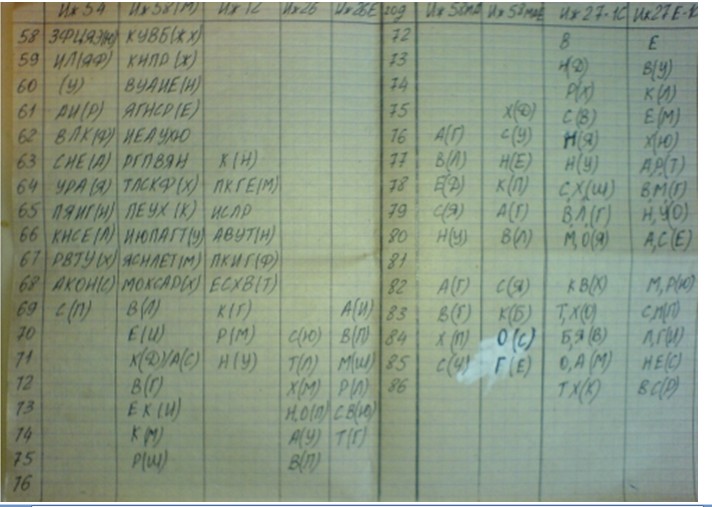 Иж 54 Иж 58(М) Иж 12 Иж 26 Иж 26Е год Иж 58МА Иж 58МАЕ Иж 27-1С Иж 27Е-1С
58 ЗФЦЯЭ(Ю) КУВБ(КХ) 72 В Е
59 ИЛ(ЯФ) КНПР(Х) 73 Н(Ф) В(У)
60 (У) ВУАИЕ(Н) 74 Р(Х) К(Л)
61 АИ(Р) ЯГНСР(Е) 75 Х(Ф) С(В) Е(М)
62 ВЛК(Ф) ИЕАУЮ 76 А(Г) С(У) Н(Я) Х(Ю)
63 СНЕ(А) РГПВЯН К(Н) 77 В(Л) Н(Е) Н(У) А,Р(Т)
64 УРА(Я) ТЛСКФ(Х) ПКГЕ(М) 78 Е(Ф) К(П) С,Х(Ш) В,М(Г)
65 ПЯИГ(Н) ЛЕУХ(К) ИСЛР 79 С(Я) А(Г) В,Л(Г) Н,У(О)
66 КНСЕ(Л) ИЮПАГТ(У) АВУТ(Н) 80 Н(У) В(Л) М,О(Я) А,С(Е)
67 РВТУ(Х) ЯСНЛЕТ(М) ПКИГ(Ф) 81
68 АКОИ(С) МОХСАР(Х) ЕСХВ(Т) 82 А(Г) С(Я) КВ(Х) М,Р(Ю)
69 С(П) В(Л) К(Г) А(И) 83 В(Г) К(Б) Т,Х(О) С,Н(П)
70 Е(И) Р(М) С(Ю) В(П) 84 Х(П) О(С) Б,Я(В) Л,Г(И)
71 Х(Ф)/А(С) Н(У) Т(Л) М(Ш) 85 С(У) Г(Е) О,А(М) НЕ(С)
72 В(Г) Х(М) Р(Л) 86 ТХ(К) ВС(Р)
73 ЕК(И) Н,О(П) СВ(Ю)
74 К(М) А(У) Т(Г)
75 Р(Ш) В(П)
76